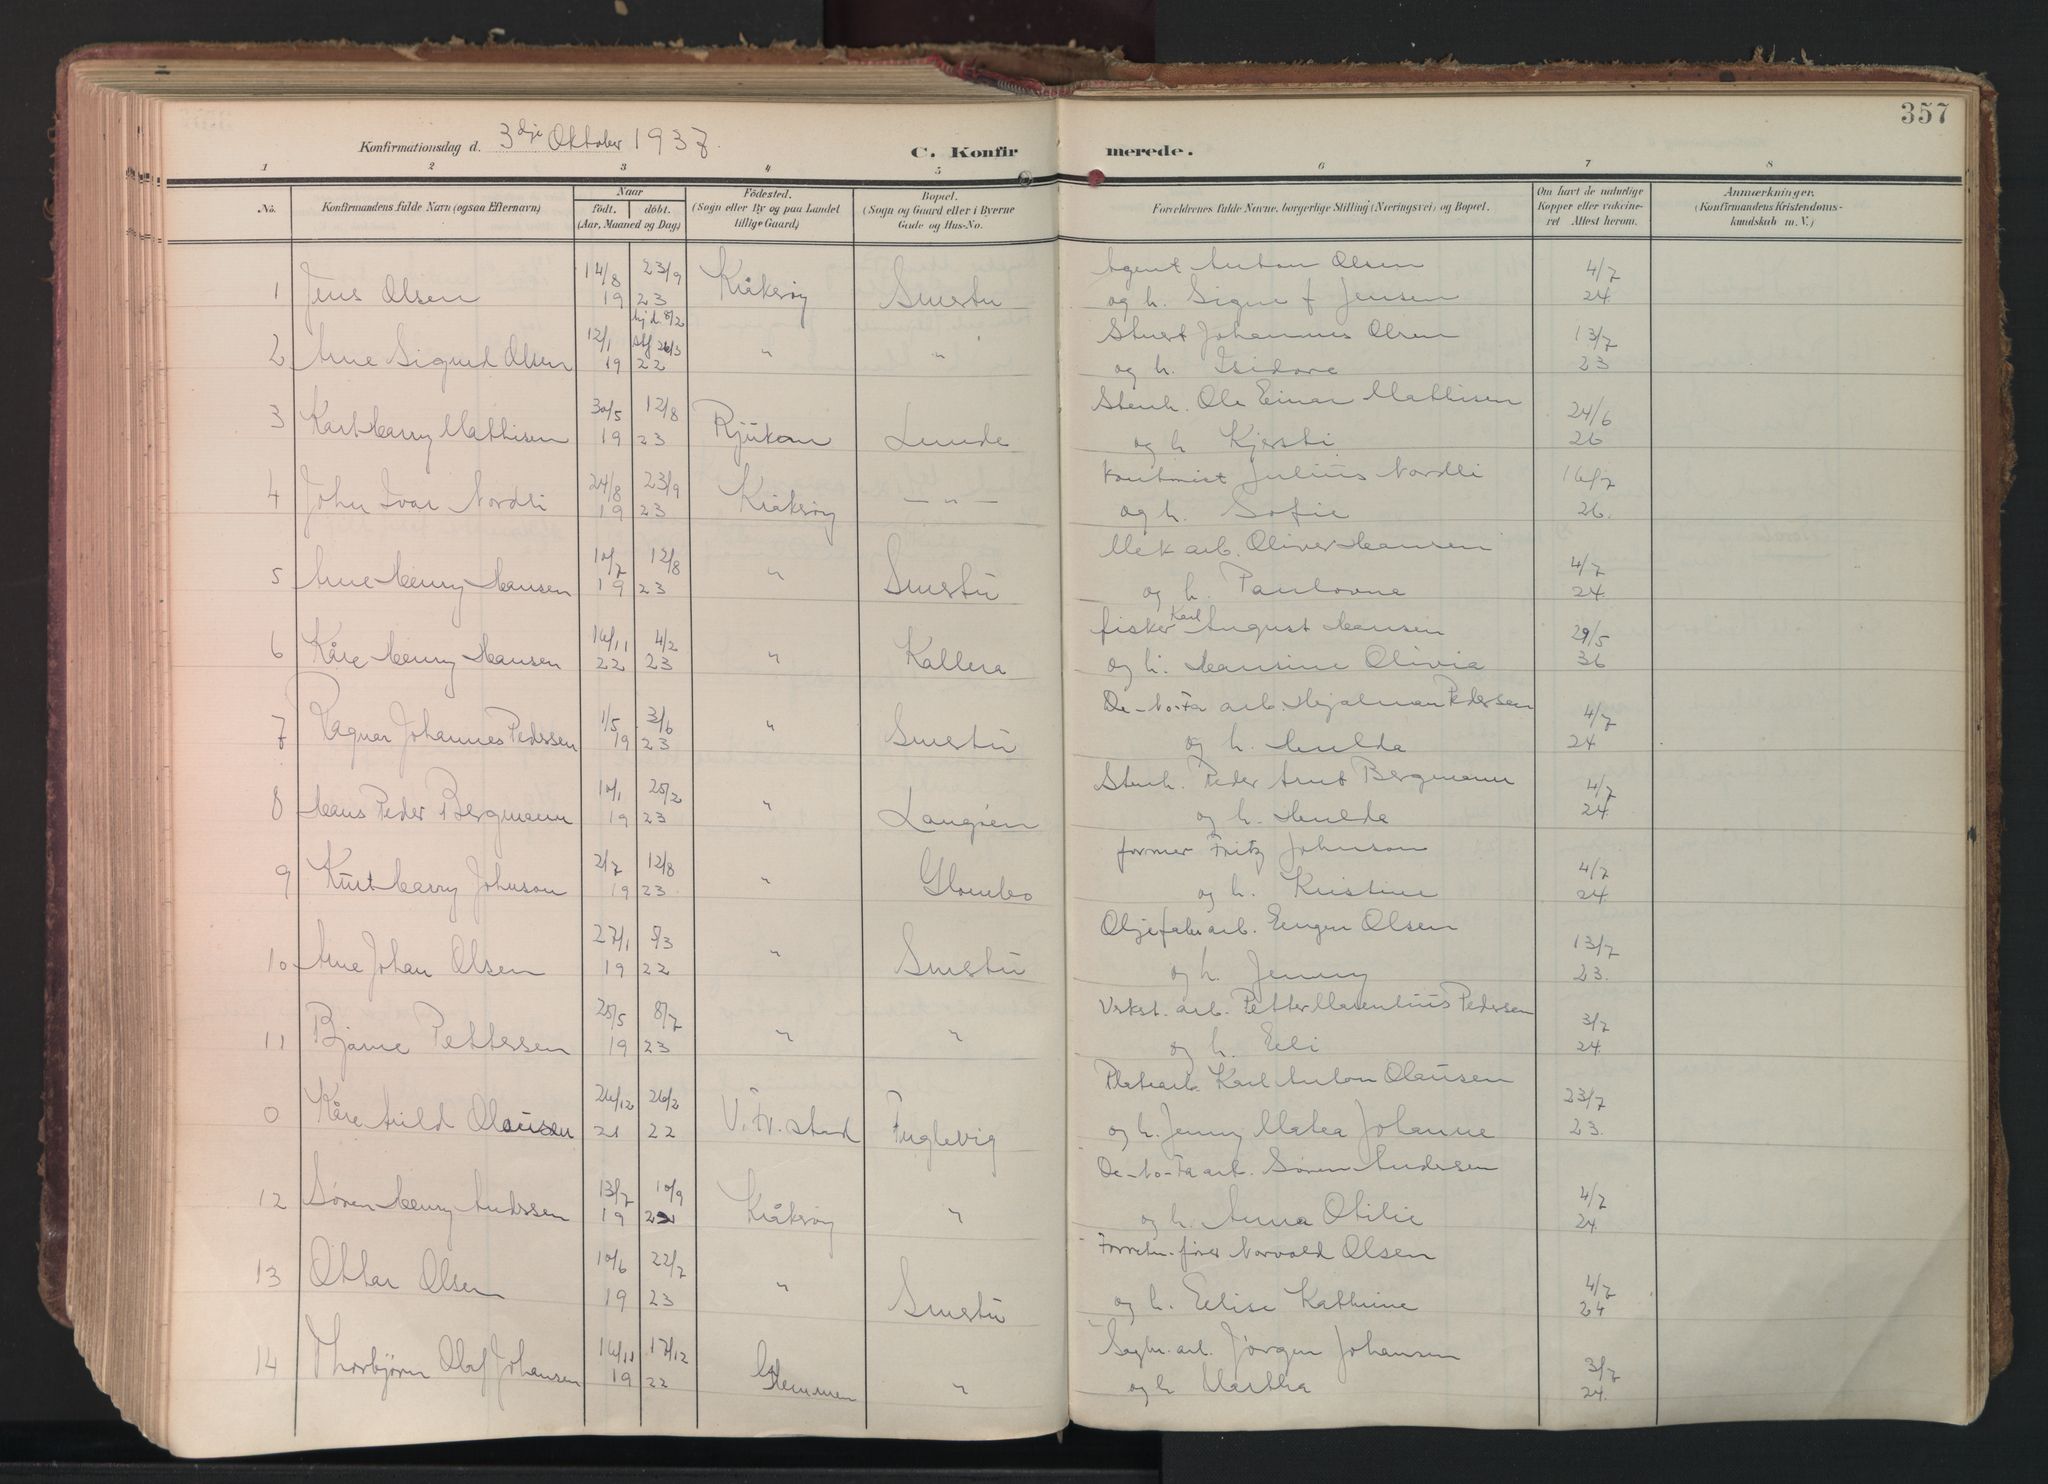 357
Konfirmationsdag d. 3dje Oktober 1937.
C. Konfirmerede.
1 2 3 4 5 6 7 8
No.
Konfirmandens fulde Navn (ogsaa Efternavn)
Naar
födt. döbt.
(Aar, Maaned og Dag)
Födested.
(Sogn eller By og paa Landet tillige Gaard)
Bopæl.
(Sogn og Gaard eller i Byerne Gade og Hus-No.
Forældrenes fulde Navne, borgerlige Stilling (Næringsvei) og Bopæl.
Om havt de naturlige Kopper eller vakcineret Attest herom.
Anmærkninger.
(Konfirmandens Kristendomskundskab m. V.)
1 Jens Olsen 14/8 19 23/9 23 Kråkerøy Smertu Agent Anton Olsen 4/7
og h. Signe f Jensen 24
2 Arne Sigurd Olsen 12/1 19 hjd. 8/2 stf 26/3 22 " " Stuert Johannes Olsen 13/7
og h. Isidore 23
3 Karl Harry Mathisen 30/5 19 12/8 23 Rjukan Lunde Stenh. Ole Einar Mathisen 24/6
og h Kjersti 26
4 John Ivar Nordli 24/8 19 23/9 23 Kråkerøy — " — Julius Nordli 16/7
og h. Sofie 26.
5 Arne Henry Hansen 10/7 19 12/8 23 " Smertu Mek arb. Oliver Hansen 4/7
og h. Paulovne 24.
6 Kåre Henry Hansen 16/11 22 4/2 23 " Kallera fisker Karl August Hansen 29/5
og h. Hansine Olivia 36
7 Ragnar Johannes Pedersen 1/5 19 3/6 23 " Smertu De-No-Fa arb. Hjalmar Pedersen 4/7
og h. Hulda 24
8 Hans Peder Bergmann 10/1 19 25/2 23 " Langøen Stenh. Peder Arnt Bergmann 4/7
og h. Hulda 24
9 Kurt Harry Johnson 2/7 19 12/8 23 " Glombo former Fritz Johnson 4/7
og h. Kristine 24
10 Arne Johan Olsen 27/1 19 5/3 22 " Smertu Oljefabr arb. Eugen Olsen 13/7
og h. Jenny 23.
11 Bjarne Pettersen 25/5 19 8/7 23 " " Verkst. arb. Petter Marentius Pedersen 3/7
og h. Elli 24.
0 Kåre Arild Olausen 26/12 21 26/2 22 V. Fr.stad Fuglevig Platearb. Karl Anton Olausen 23/7
og h. Jenny Matea Johanne 23.
12 Søren Henry Anderssen 13/7 19 10/9 Kråkerøy " De-No-Fa arb. Søren Andersen 4/7
og h. Anna Otilie 24
13 Ottar Olsen 10/6 19 22/7 23 " Smertu Forretn. fører Norvald Olsen 4/7
og h. Elise Kathrine 24
14 Thorbjørn Olaf Johansen 16/11 19 17/12 22 Glemmen " Sagbr. arb. Jørgen Johansen 3/7
og h Martha 24.